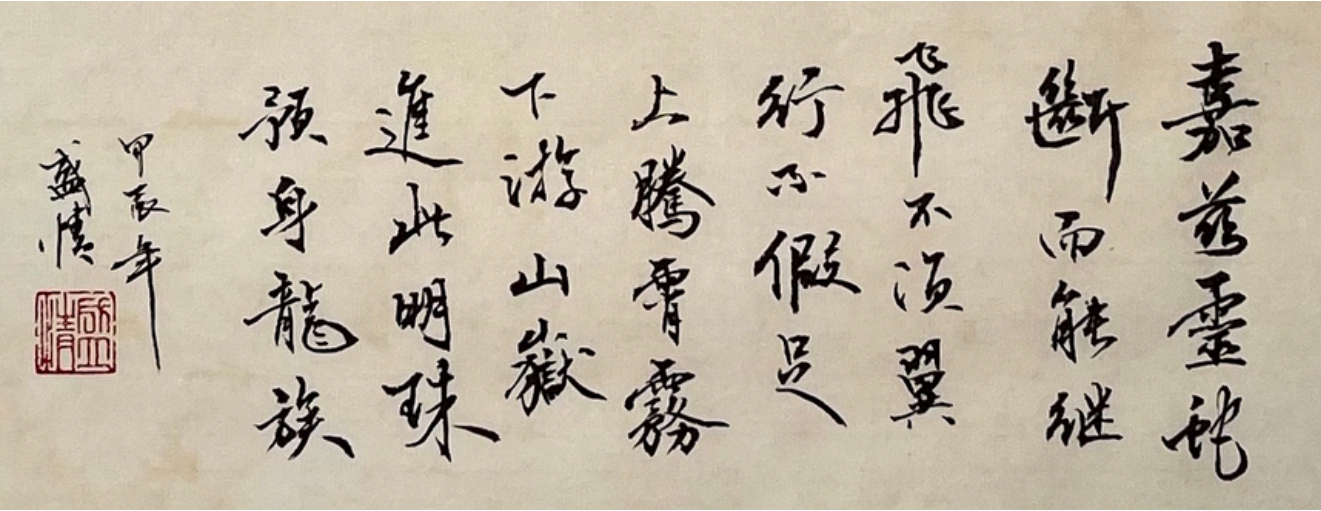 嘉茲靈蛇
斷而能继
飛不須翼
行不假足
上騰霄霧
下游山嶽
進此明珠
預身龍族
甲辰年
盛情
盛情